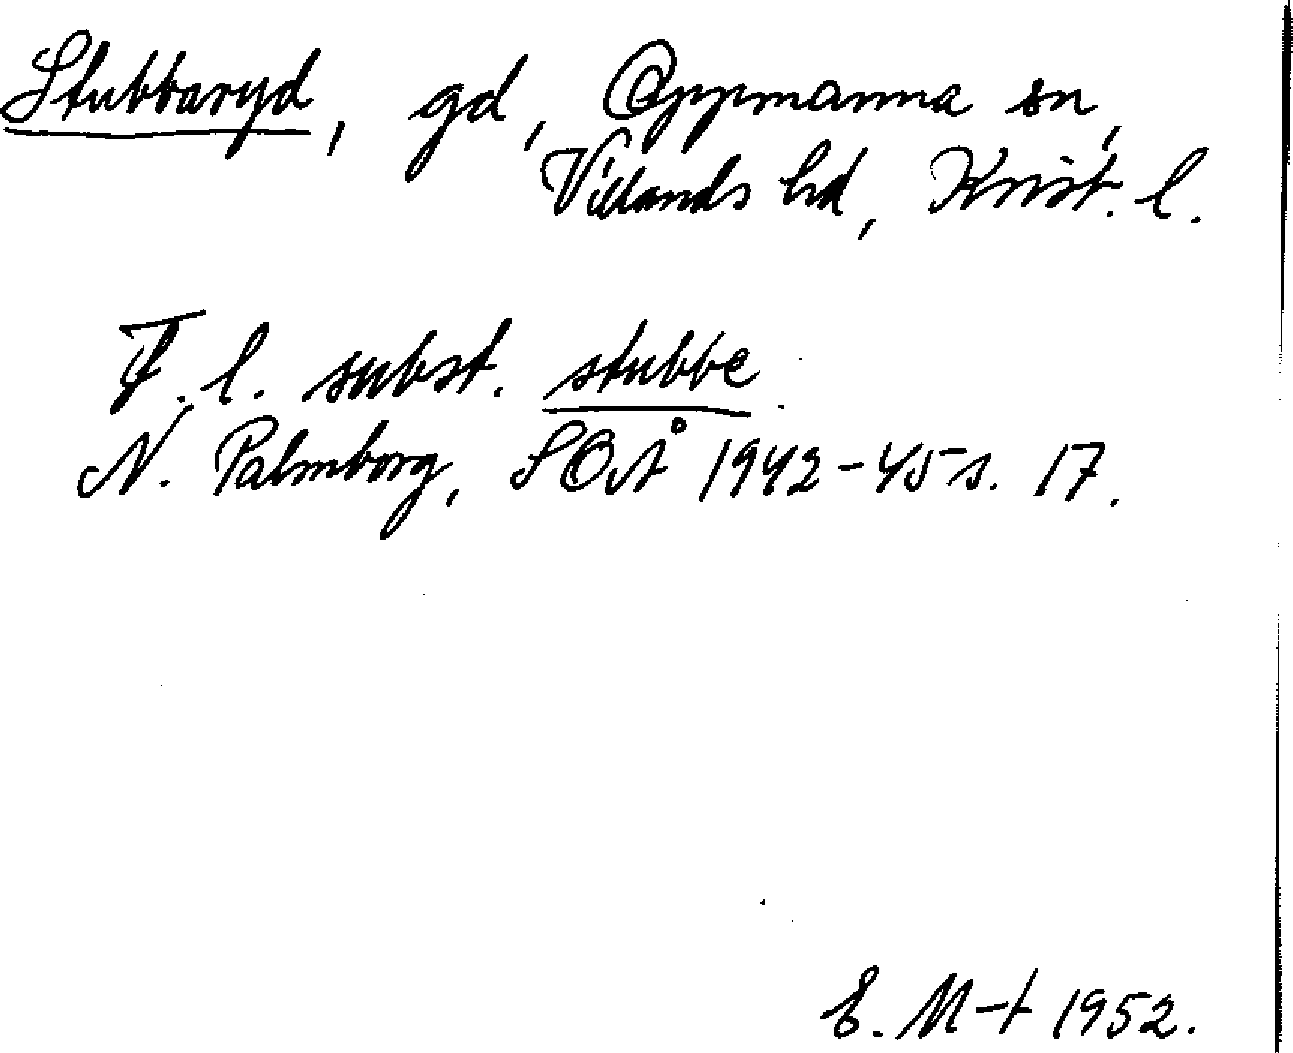 Stubbaryd, gd, Oppmanna sn,
Villands hd, Krist. l.
F. l. subst. stubbe.
N. Palmborg, SOÅ 1942-45 s. 17.
E. M-t 1952.